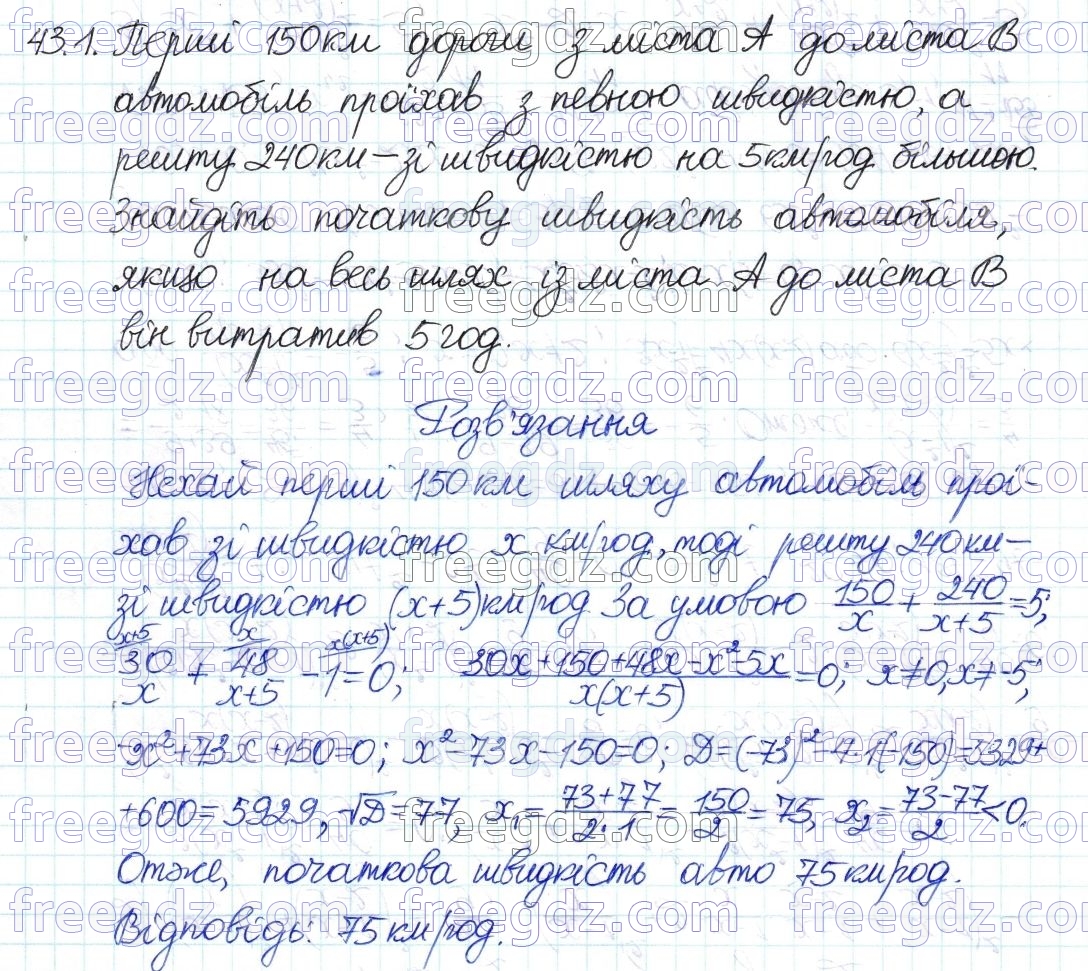 43.1. Перші 150 км дороги з міста А до міста В
автомобіль проїхав з певною швидкістю, а
решту 240 км – зі швидкістю на 5 км/год більшою.
Знайдіть початкову швидкість автомобіля,
якщо на весь шлях із міста А до міста В
він витратив 5 год.
Розв'язання
Нехай перші 150 км шляху автомобіль прої-
хав зі швидкістю x км/год, тоді решту 240 км –
зі швидкістю (x+5) км/год. За умовою 150/x + 240/(x+5) = 5;
x+5 x x(x+5)
30/x + 48/(x+5) - 1 = 0; (30x+150+48x-x²-5x)/(x(x+5)) = 0; x≠0, x≠-5;
-x²+73x+150=0; x²-73x-150=0; D=(-73)²-4·1·(-150)=5329+
+600=5929, √D=77, x₁=(73+77)/(2·1)=150/2=75, x₂=(73-77)/2<0.
Отже, початкова швидкість авто 75 км/год.
Відповідь: 75 км/год.
freegdz.com